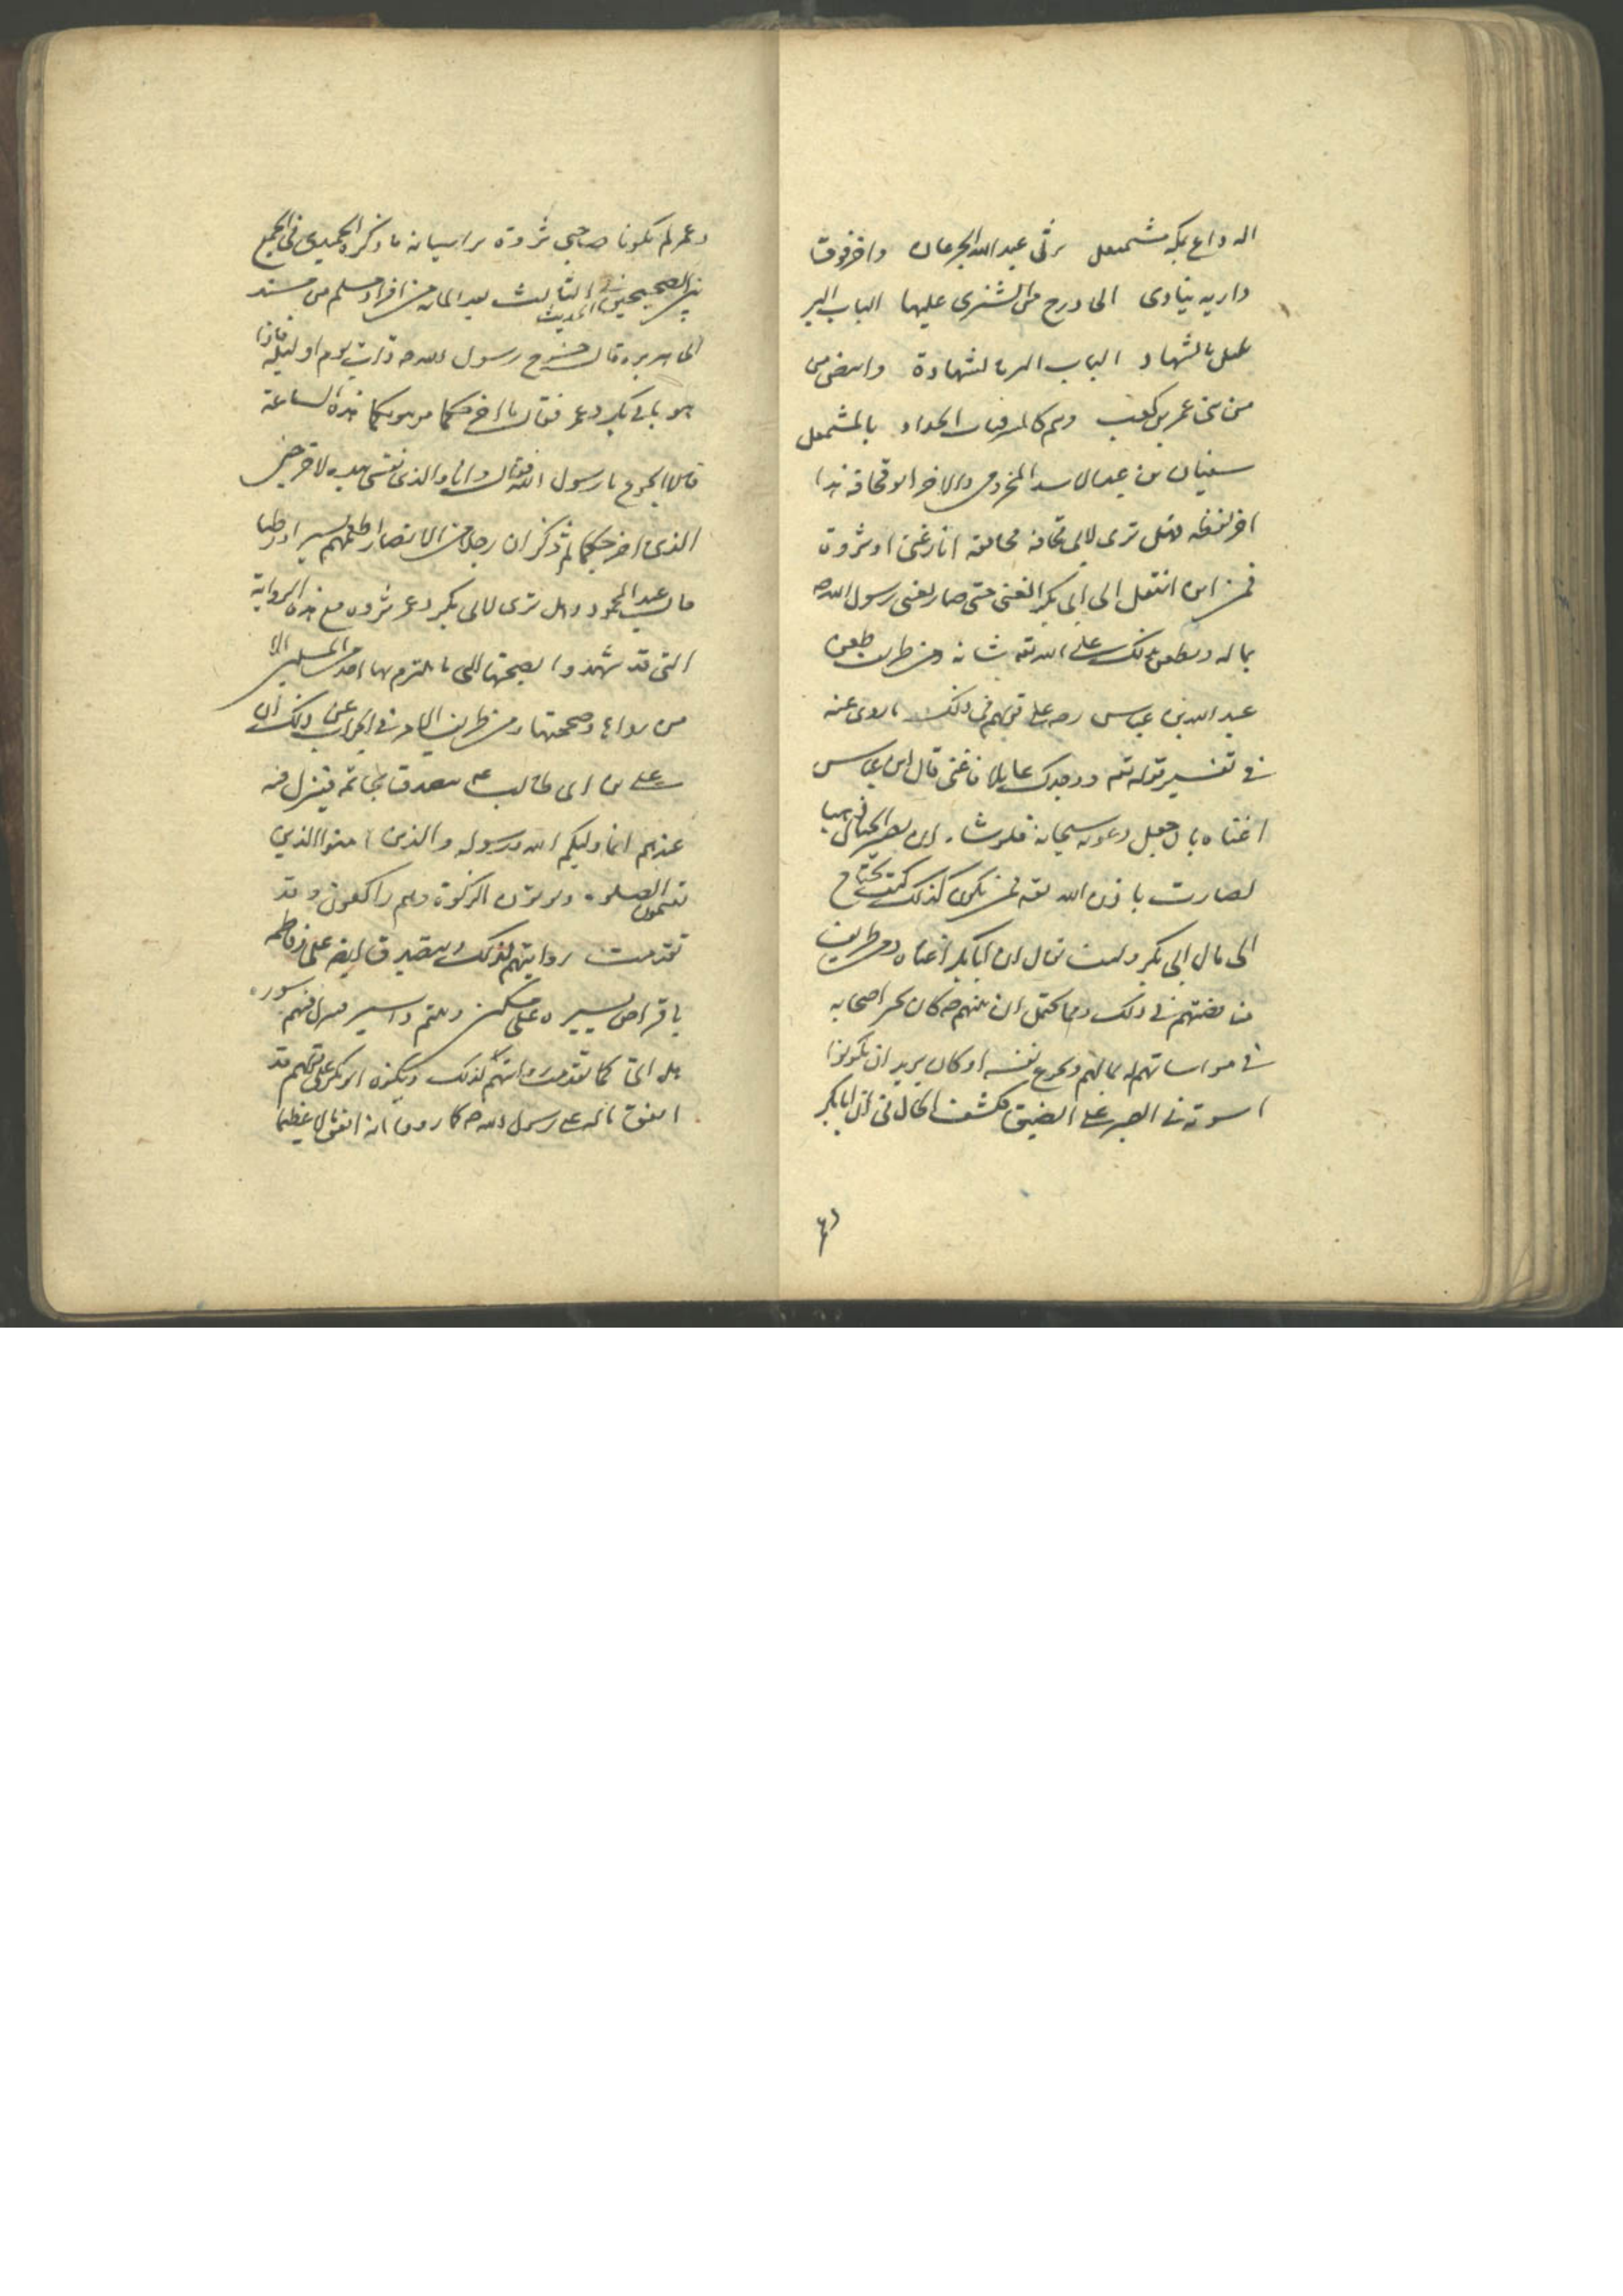 له داع بمكة مشمعل عبد الله واخر فوق
دارته ينادى الى درج من الشيزى عليها الباب البر
بالشهاد الباب البر بالشهادة
من بنى عمر بن كعب وهم بالمشمعل
سفيان بن عبد الاسد المخزومى والاخر ابو قحافة هذا
اخر لفظه فهل ترى لابى قحافة اثار غنى او ثروة
فمن اين انتقل الى ابى بكر الغنى حتى صار يغنى رسول الله ص
بماله ويطعن بذلك على الله تعه شانه ومن طريف طعن
عبد الله بن عباس ره على قولهم فى ذلك ما روى عنه
فى تفسير قوله تعه ووجدك عايلا فاغنى قال ابن عباس
اغناه بان جعل دعوته مستجابة فلو شاء ان يصير الجبال ذهبا
لصارت باذن الله تعه فمن يكون كذلك كيف يحتاج
الى مال ابى بكر وكيف يقال ان ابا بكر اغناه ومن طريف
مناقضتهم فى ذلك ان نبيهم ص كان اصحابه
فى مواساتهم له بمالهم ويجوع نفسه او كان يريد ان يكونوا
اسوته فى الصبر على الضيق يكشف الحال فى ان ابا بكر
وعمر لم يكونا صاحبى ثروة ما ذكره الحميدى فى الجمع
بين الصحيحين فى الحديث الثالث بعد المائة من افراد مسلم من مسند
ابى هريرة قال خرج رسول الله ص ذات يوم او ليلة فاذا
هو بابى بكر وعمر فقال ما اخرجكما من بيوتكما هذه الساعة
قالا الجوع يا رسول الله فقال وانا والذى نفسى بيده لاخرجنى
الذى اخرجكما ثم ذكر ان رجلا من الانصار اطعمهم بسرا ورطبا
قال عبد المحمود وهل ترى لابى بكر وعمر ثروة مع هذه الرواية
التى قد شهدوا بصحتها التى ما يلتزم بها احد من المسلمين الا
من رواها وصححها ومن طريف فى الجواب عن ذلك ان
على بن ابى طالب ع يتصدق بخاتمه فينزل فيه
عندهم انما وليكم الله ورسوله والذين امنوا الذين
يقيمون الصلوة ويؤتون الزكوة وهم راكعون وقد
تقدمت روايتهم لذلك ويتصدق ايضا على وفاطمة
باقراص يسيرة على مسكين ويتيم واسير فينزل فيهم سورة
هل اتى كما تقدمت روايتهم لذلك ويكون ابو بكر على قولهم قد
انفق ماله على رسول الله ص كما رووا انه انفق مالا عظيما